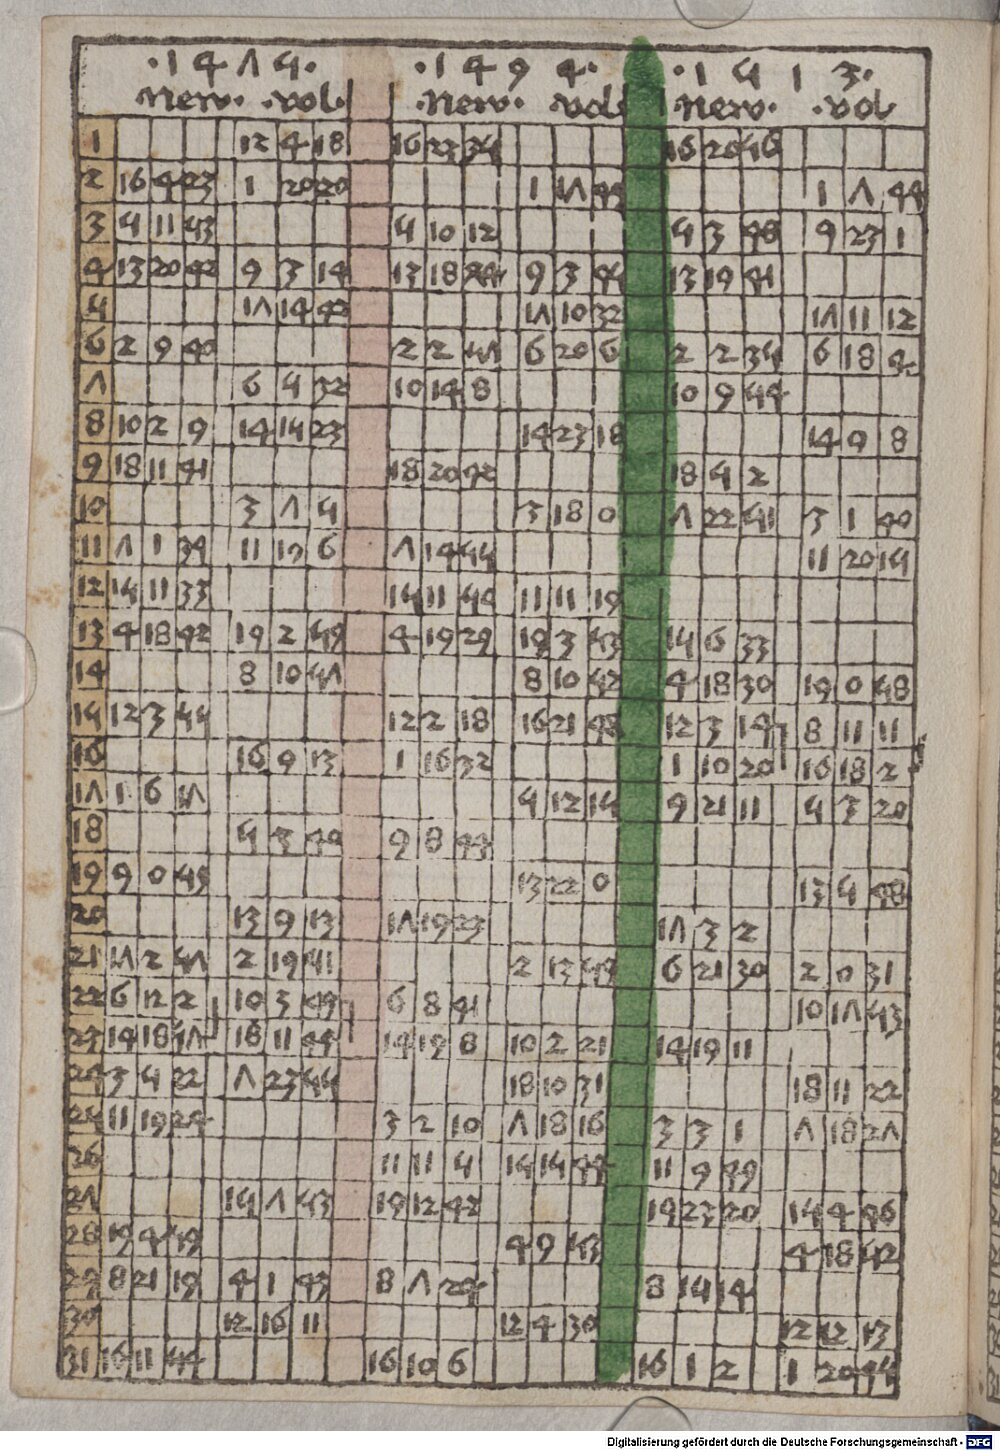 ·1 4 7 5· ·1 4 9 4· ·1 5 1 3·
new· vol· ·new· vol· new· ·vol
1 12 4 18 16 23 35 16 20 46
2 16 4 23 1 20 20 1 17 49 1 7 44
3 5 11 53 5 10 12 5 3 48 9 23 1
4 13 20 42 9 3 15 13 18 9 3 13 19 51
5 17 14 42 17 10 32 17 11 12
6 2 9 40 2 2 57 6 20 6 2 2 35 6 18 4
7 6 5 32 10 15 8 10 9 54
8 10 2 9 14 15 23 14 23 18 14 9 8
9 18 11 51 18 20 42 18 5 2
10 3 7 5 3 18 0 7 22 51 3 1 40
11 7 1 39 11 12 6 7 14 54 11 20 15
12 15 11 33 15 11 40 11 11 19
13 4 18 42 19 2 59 4 19 29 19 3 53 15 6 33
14 8 10 57 8 10 52 4 18 30 19 0 58
15 12 3 55 12 2 18 16 21 48 12 3 15 8 11 11
16 16 9 13 1 16 32 1 10 20 16 18 2
17 1 6 17 5 12 15 9 21 11 5 3 20
18 5 3 40 9 8 43
19 9 0 59 13 22 0 13 5 48
20 13 9 13 17 19 23 17 3 2
21 17 2 57 2 19 51 2 13 59 6 21 30 2 0 31
22 6 12 2 10 3 49 6 8 41 10 17 53
23 14 18 57 18 11 45 14 19 8 10 2 21 14 19 11
24 3 5 22 7 23 55 18 10 31 18 11 22
25 11 19 24 3 2 10 7 18 16 3 3 1 7 18 27
26 11 11 5 15 14 44 11 9 49
27 15 7 53 19 12 42 19 23 20 15 4 46
28 19 4 19 4 9 53 4 18 52
29 8 21 19 4 1 43 8 7 24 8 15 15
30 12 16 11 12 4 30 12 12 13
31 16 11 44 16 10 6 16 1 2 1 20 45
Digitalisierung gefördert durch die Deutsche Forschungsgemeinschaft - DFG